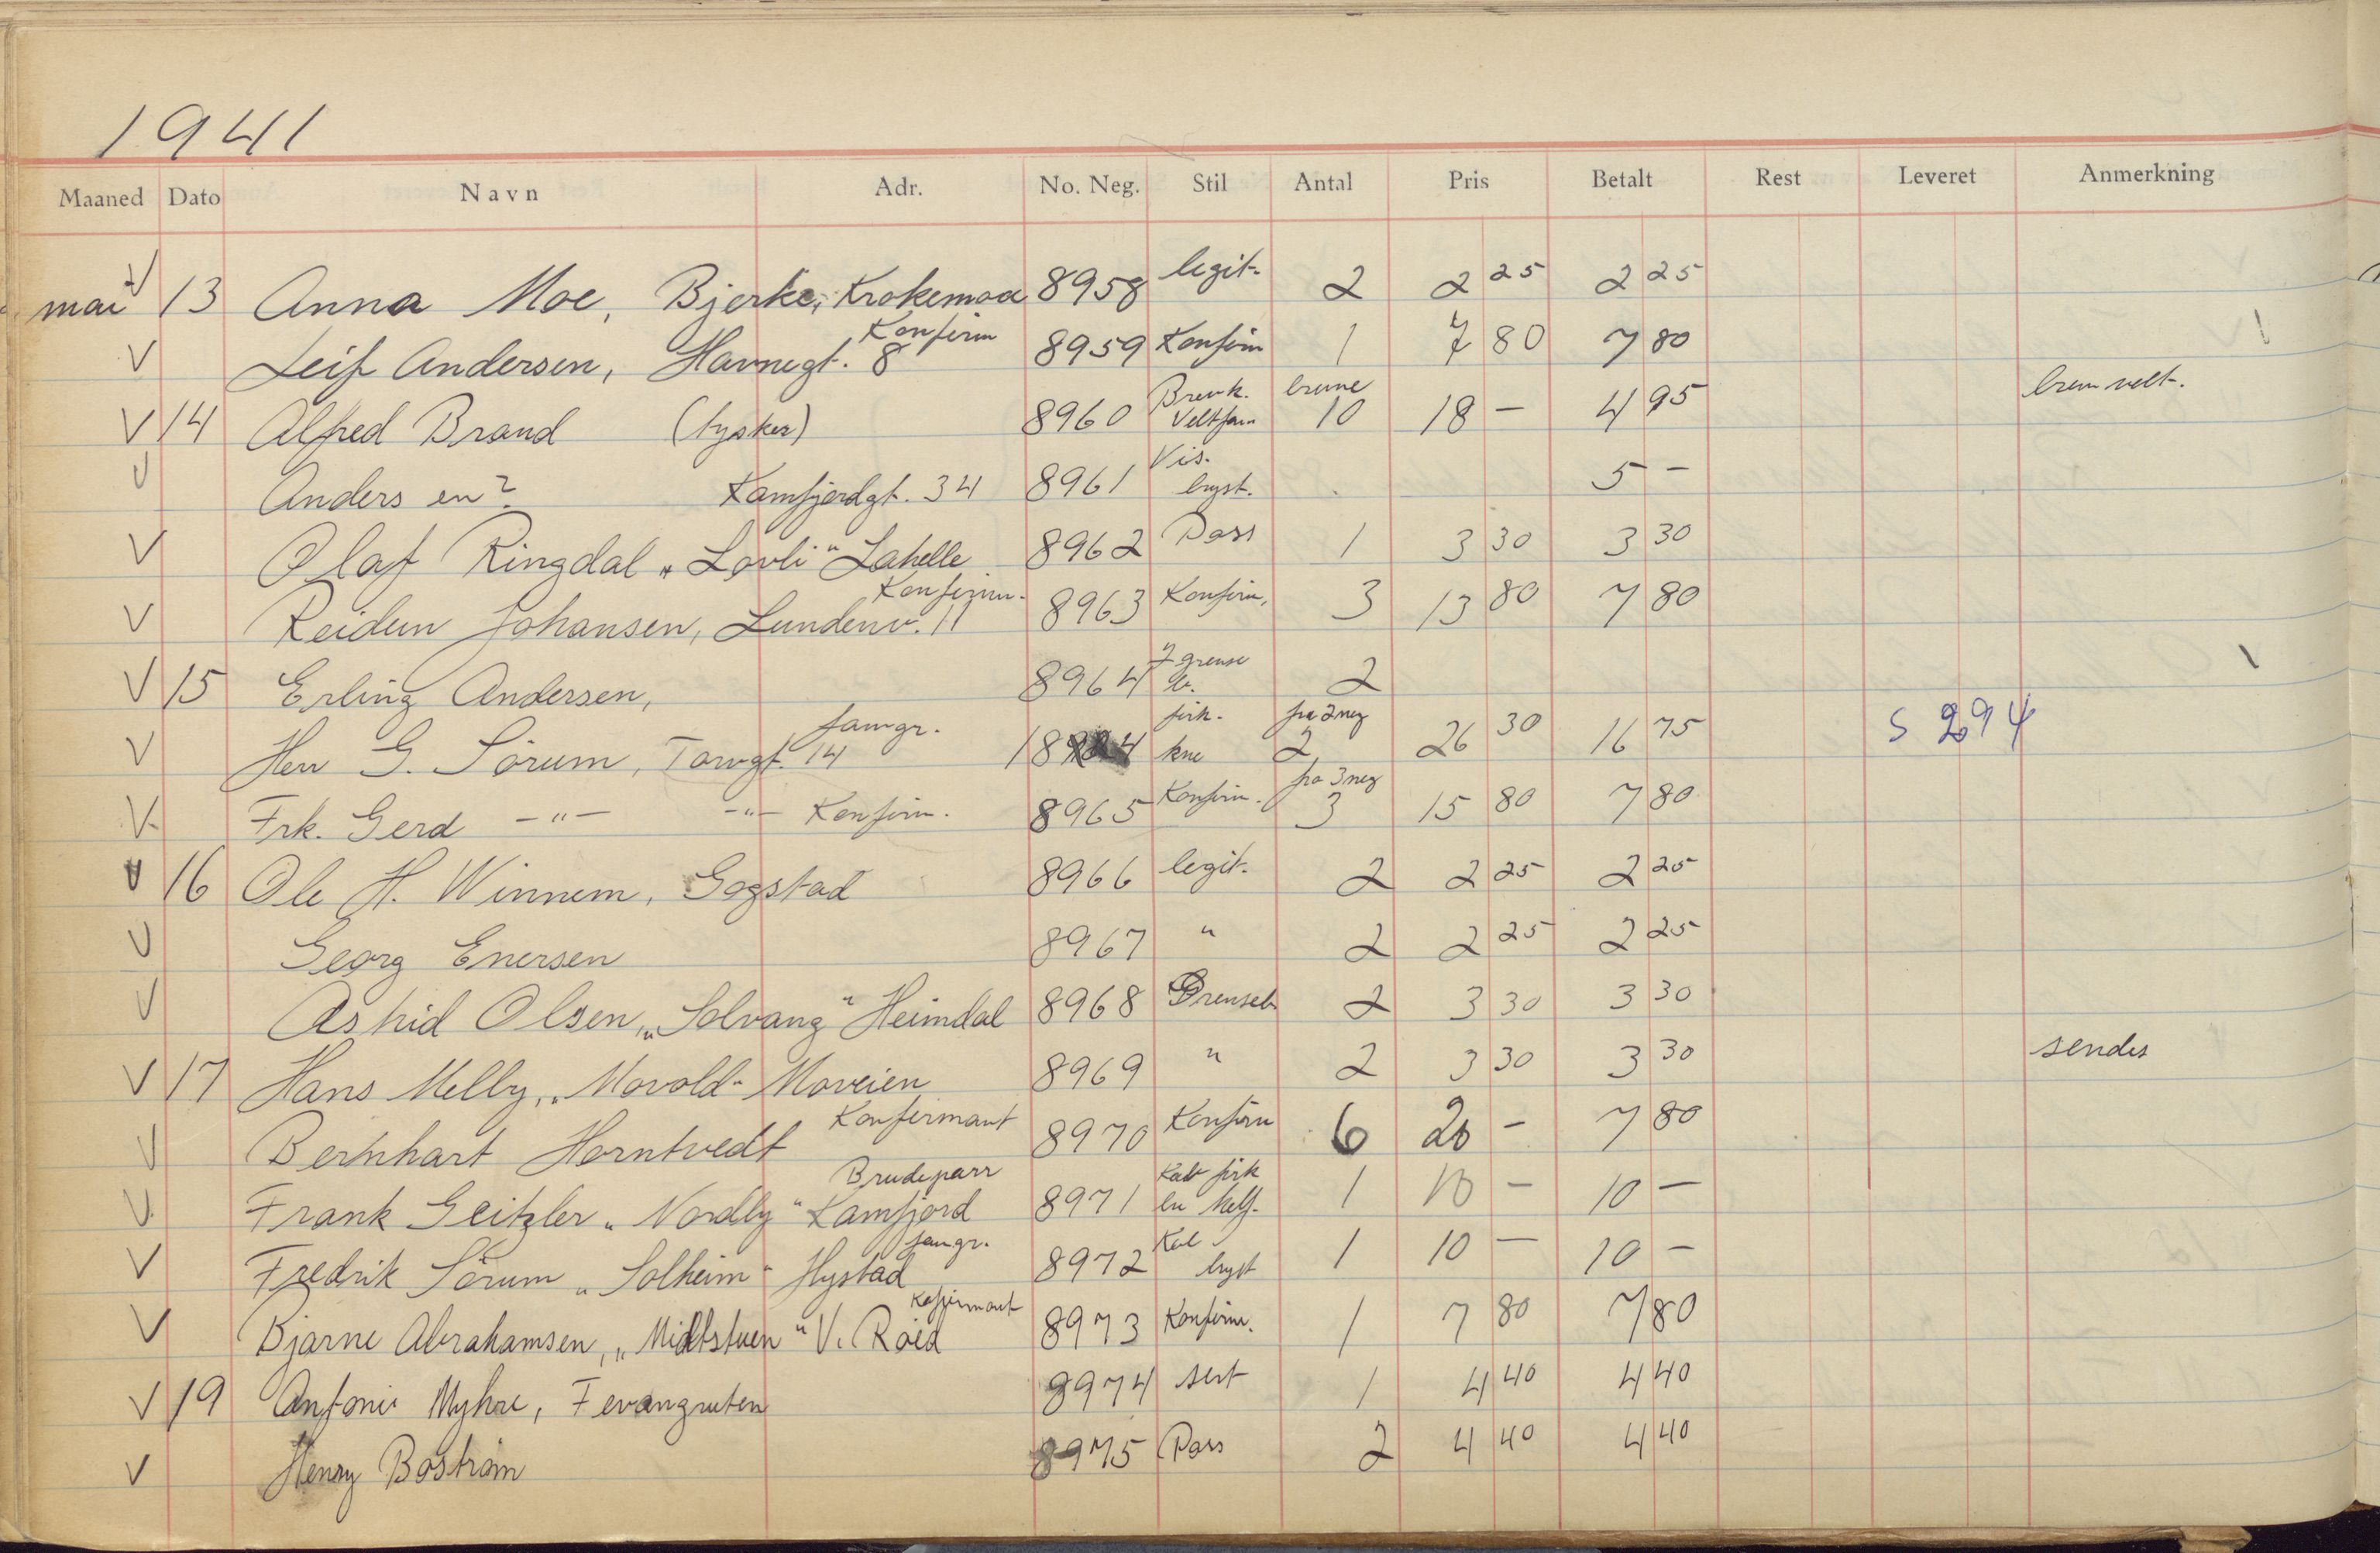 1941
Maaned Dato Navn Adr. No. Neg. Stil Antal Pris Betalt Rest Leveret Anmerkning
mai V 13 Anna Moe, Bjerke, Krokemoa 8958 legit. 2 2 25 2 25
V Leif Andersen, Havnegt. 8 Konfirm 8959 Konfirm 1 7 80 7 80
V 14 Alfred Brand (tysker) 8960 10 18 - 4 95
V Anders en? Kamfjordgt. 34 8961 Vis. bryst. 5 -
V Olaf Ringdal "Lovli" Lahelle 8962 Pass 1 3 30 3 30
V Reidun Johansen, Lundenv. 11 Konfirm. 8963 Konfirm. 3 13 80 7 80
V 15 Erling Andersen, 8964 2
V Herr G. Sörum, Torvgt. 14 famgr. kne fra 2 neg 2 26 30 16 75 S 294
V Frk. Gerd -"- -"- Konfirm. 8965 Konfirm. fra 3 neg 3 15 80 7 80
V 16 Ole H. Winnem, Gogstad 8966 legit. 2 2 25 2 25
V Georg Enersen 8967 " 2 2 25 2 25
V Astrid Olsen, "Solvang" Heimdal 8968 Grenseb. 2 3 30 3 30
V 17 Hans Melby, "Movold" Moveien 8969 " 2 3 30 3 30 sendes
V Bernhart Horntvedt Konfirmant 8970 Konfirm 6 20 - 7 80
V Frank Geitzler "Nordly" Kamfjord Brudeparr 8971 1 10 - 10 -
V Fredrik Sörum "Solheim" Hystad famgr. 8972 Kab bryst 1 10 - 10 -
V Bjarne Abrahamsen, "Midtstuen" V. Röed Kofirmant 8973 Konfirm. 1 7 80 7 80
V 19 Antonie Myhre, Fevangruten 8974 sert 1 4 40 4 40
V Henry Boström 8975 Pass 2 4 40 4 40